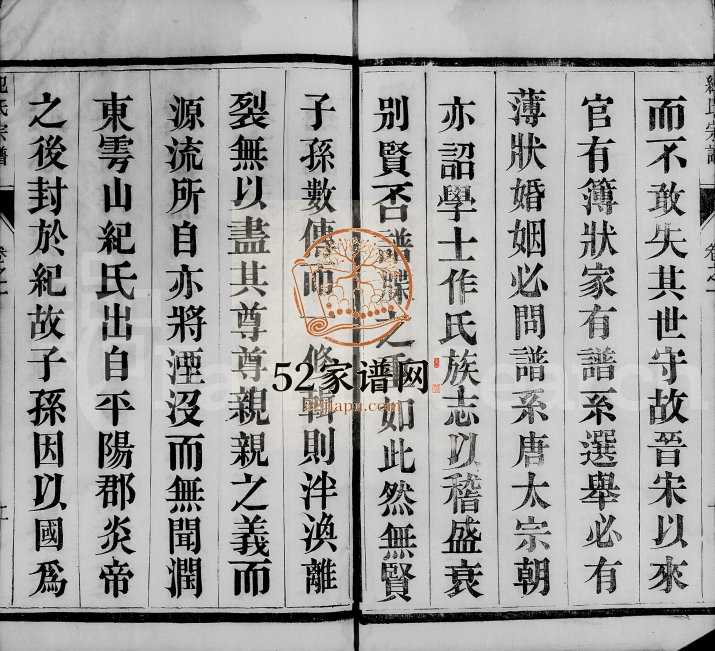 而不敢失其世守故晉宋以來
官有簿狀家有譜系選舉必有
薄狀婚姻必問譜系唐太宗朝
亦詔學士作氏族志以稽盛衰
别賢否譜牒之重如此然無賢
子孫數傳而一修輯則泮渙離
裂無以盡其尊尊親親之義而
源流所自亦將湮沒而無聞潤
東雩山紀氏出自平陽郡炎帝
之後封於紀故子孫因以國爲
紀氏宗譜
卷之一
52家谱网
52jiapu.com